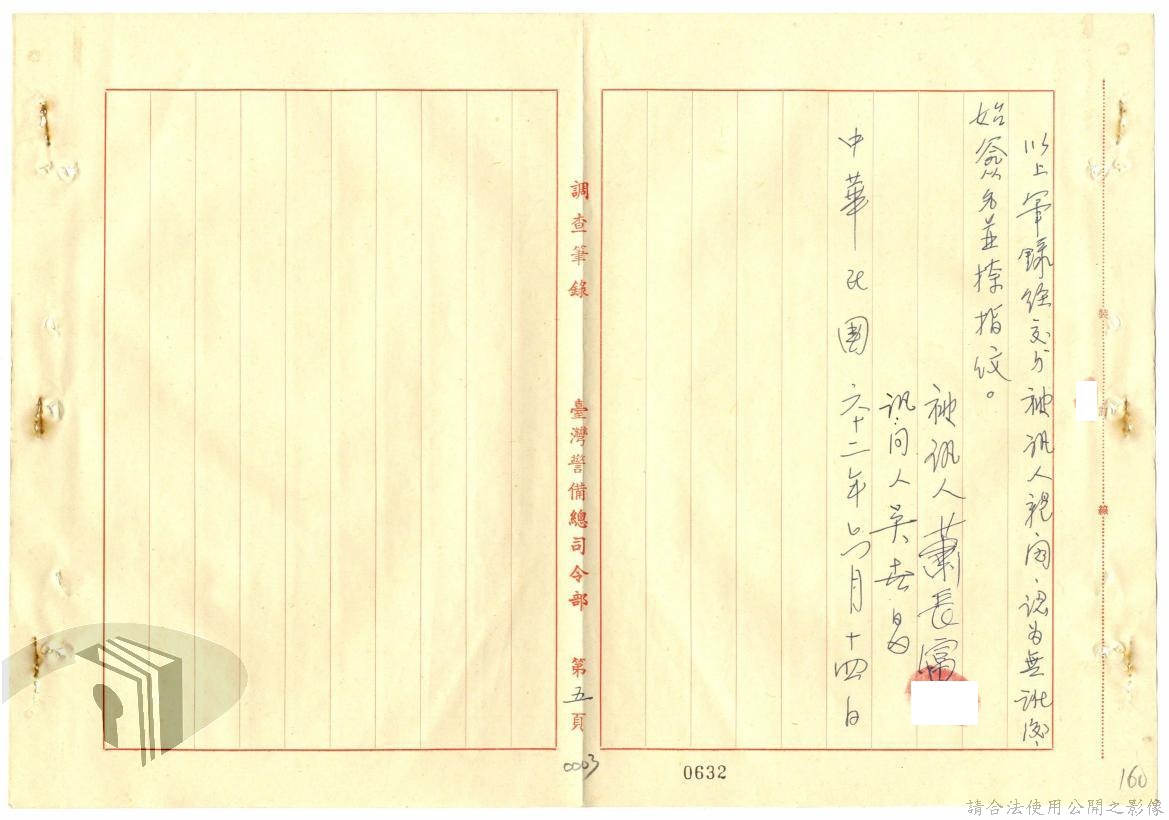 以上筆錄經交予被訊人親閱認為無訛後
始簽名並捺指紋。
被訊人 蕭長富
訊問人 吳
中華民國六十二年六月十四日
裝
訂
線
調查筆錄 臺灣警備總司令部 第五頁
0003
0632
160
請合法使用公開之影像